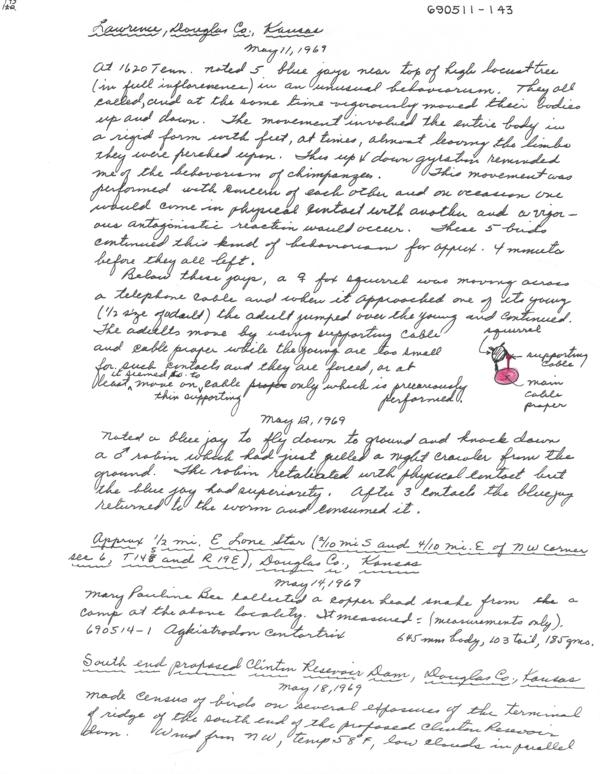 690511-143
Lawrence, Douglas Co., Kansas
May 11, 1969
At 1620 Tenn. noted 5 blue jays near top of high locust tree
(in full inflorenence) in an unusual behaviorism. They all
called, and at the same time vigorously moved their bodies
up and down. The movement involved the entire body in
a rigid form with feet, at times, almost leaving the limbs
they were perched upon. This up & down gyration reminded
me of the behaviorism of chimpanzees. This movement was
performed with concern of each other and on occasion one
would come in physical contact with another and a vigor-
ous antagonistic reaction would occur. These 5 birds
continued this kind of behaviorism for approx. 4 minutes
before they all left.
Below these jays, a ♀ fox squirrel was moving across
a telephone cable and when it approached one of its young
(1/2 size of adult) the adult jumped over the young and continued.
The adults move by using supporting cable
and cable proper while the young are too small
for such contacts and they are forced, or at
least, it seemed so, to move on cable proper only which is precariously
thin supporting performed.
squirrel
supporting
cable
main
cable
proper
May 12, 1969
Noted a blue jay to fly down to ground and knock down
a ♂ robin which had just pulled a night crawler from the
ground. The robin retaliated with physical contact but
the blue jay had superiority. After 3 contacts the blue jay
returned to the worm and consumed it.
Approx 1/2 mi. E Lone Star (9/10 mi S and 4/10 mi. E of NW corner
sec 6, T 14 S and R 19 E), Douglas Co., Kansas
May 14, 1969
Mary Pauline Bee collected a copper head snake from the a
camp at the above locality. It measured = (measurements only).
690514-1 Agkistrodon contortrix 645 mm body, 103 tail, 185 gms.
South end proposed Clinton Resevoir Dam, Douglas Co., Kansas
May 18, 1969
Made census of birds on several exposures of the terminal
of ridge of the south end of the proposed Clinton Resevoir
dam. Wind from NW, temp 58° F, low clouds in parallel